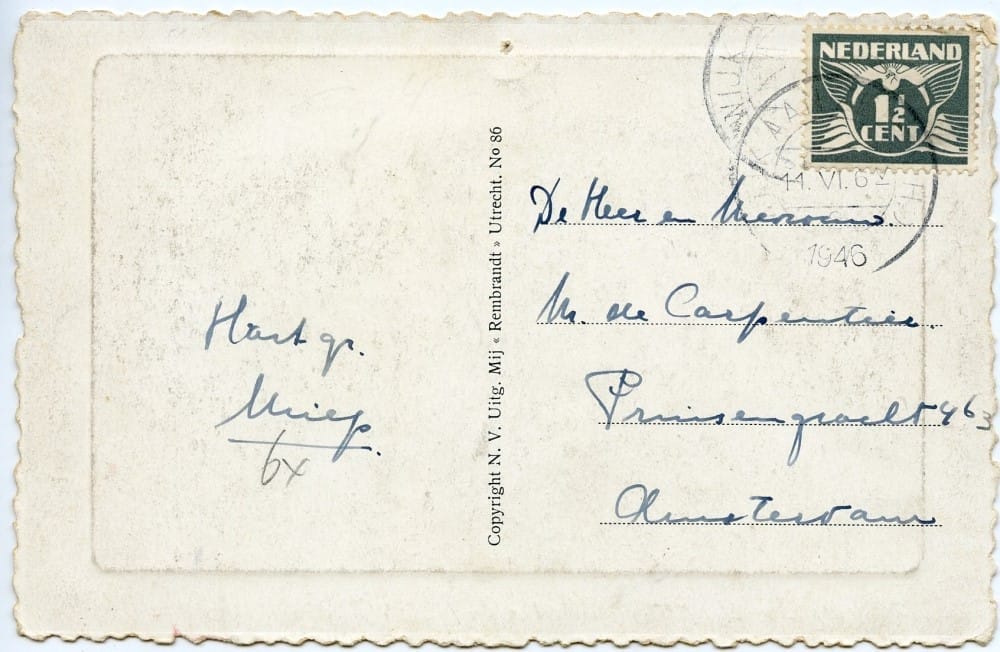 NEDERLAND
1½
CENT
11. VI. 6
1946
De Heer en Mevrouw.
M. de Carpentier.
Prinsengracht 463
Amsterdam
Copyright N. V. Uitg. Mij « Rembrandt » Utrecht. No 86
Hart gr.
Miep.
6x